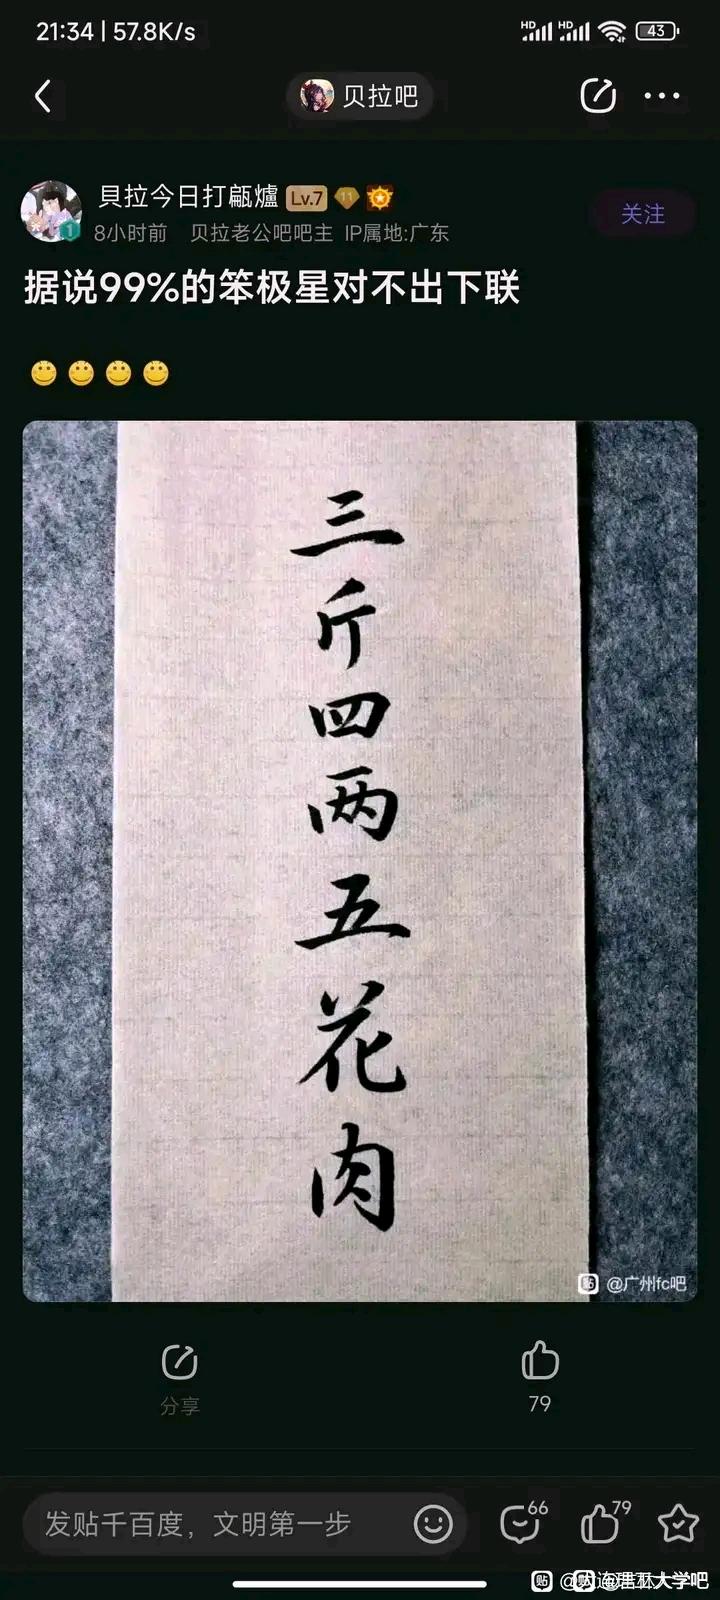 21:34 | 57.8K/s
HD HD 43
贝拉吧
貝拉今日打甌爐 Lv.7 11
关注
1
8小时前 贝拉老公吧吧主 IP属地:广东
据说99%的笨极星对不出下联
三斤四两五花肉
贴 @广州fc吧
分享
79
发贴千百度，文明第一步
66
79